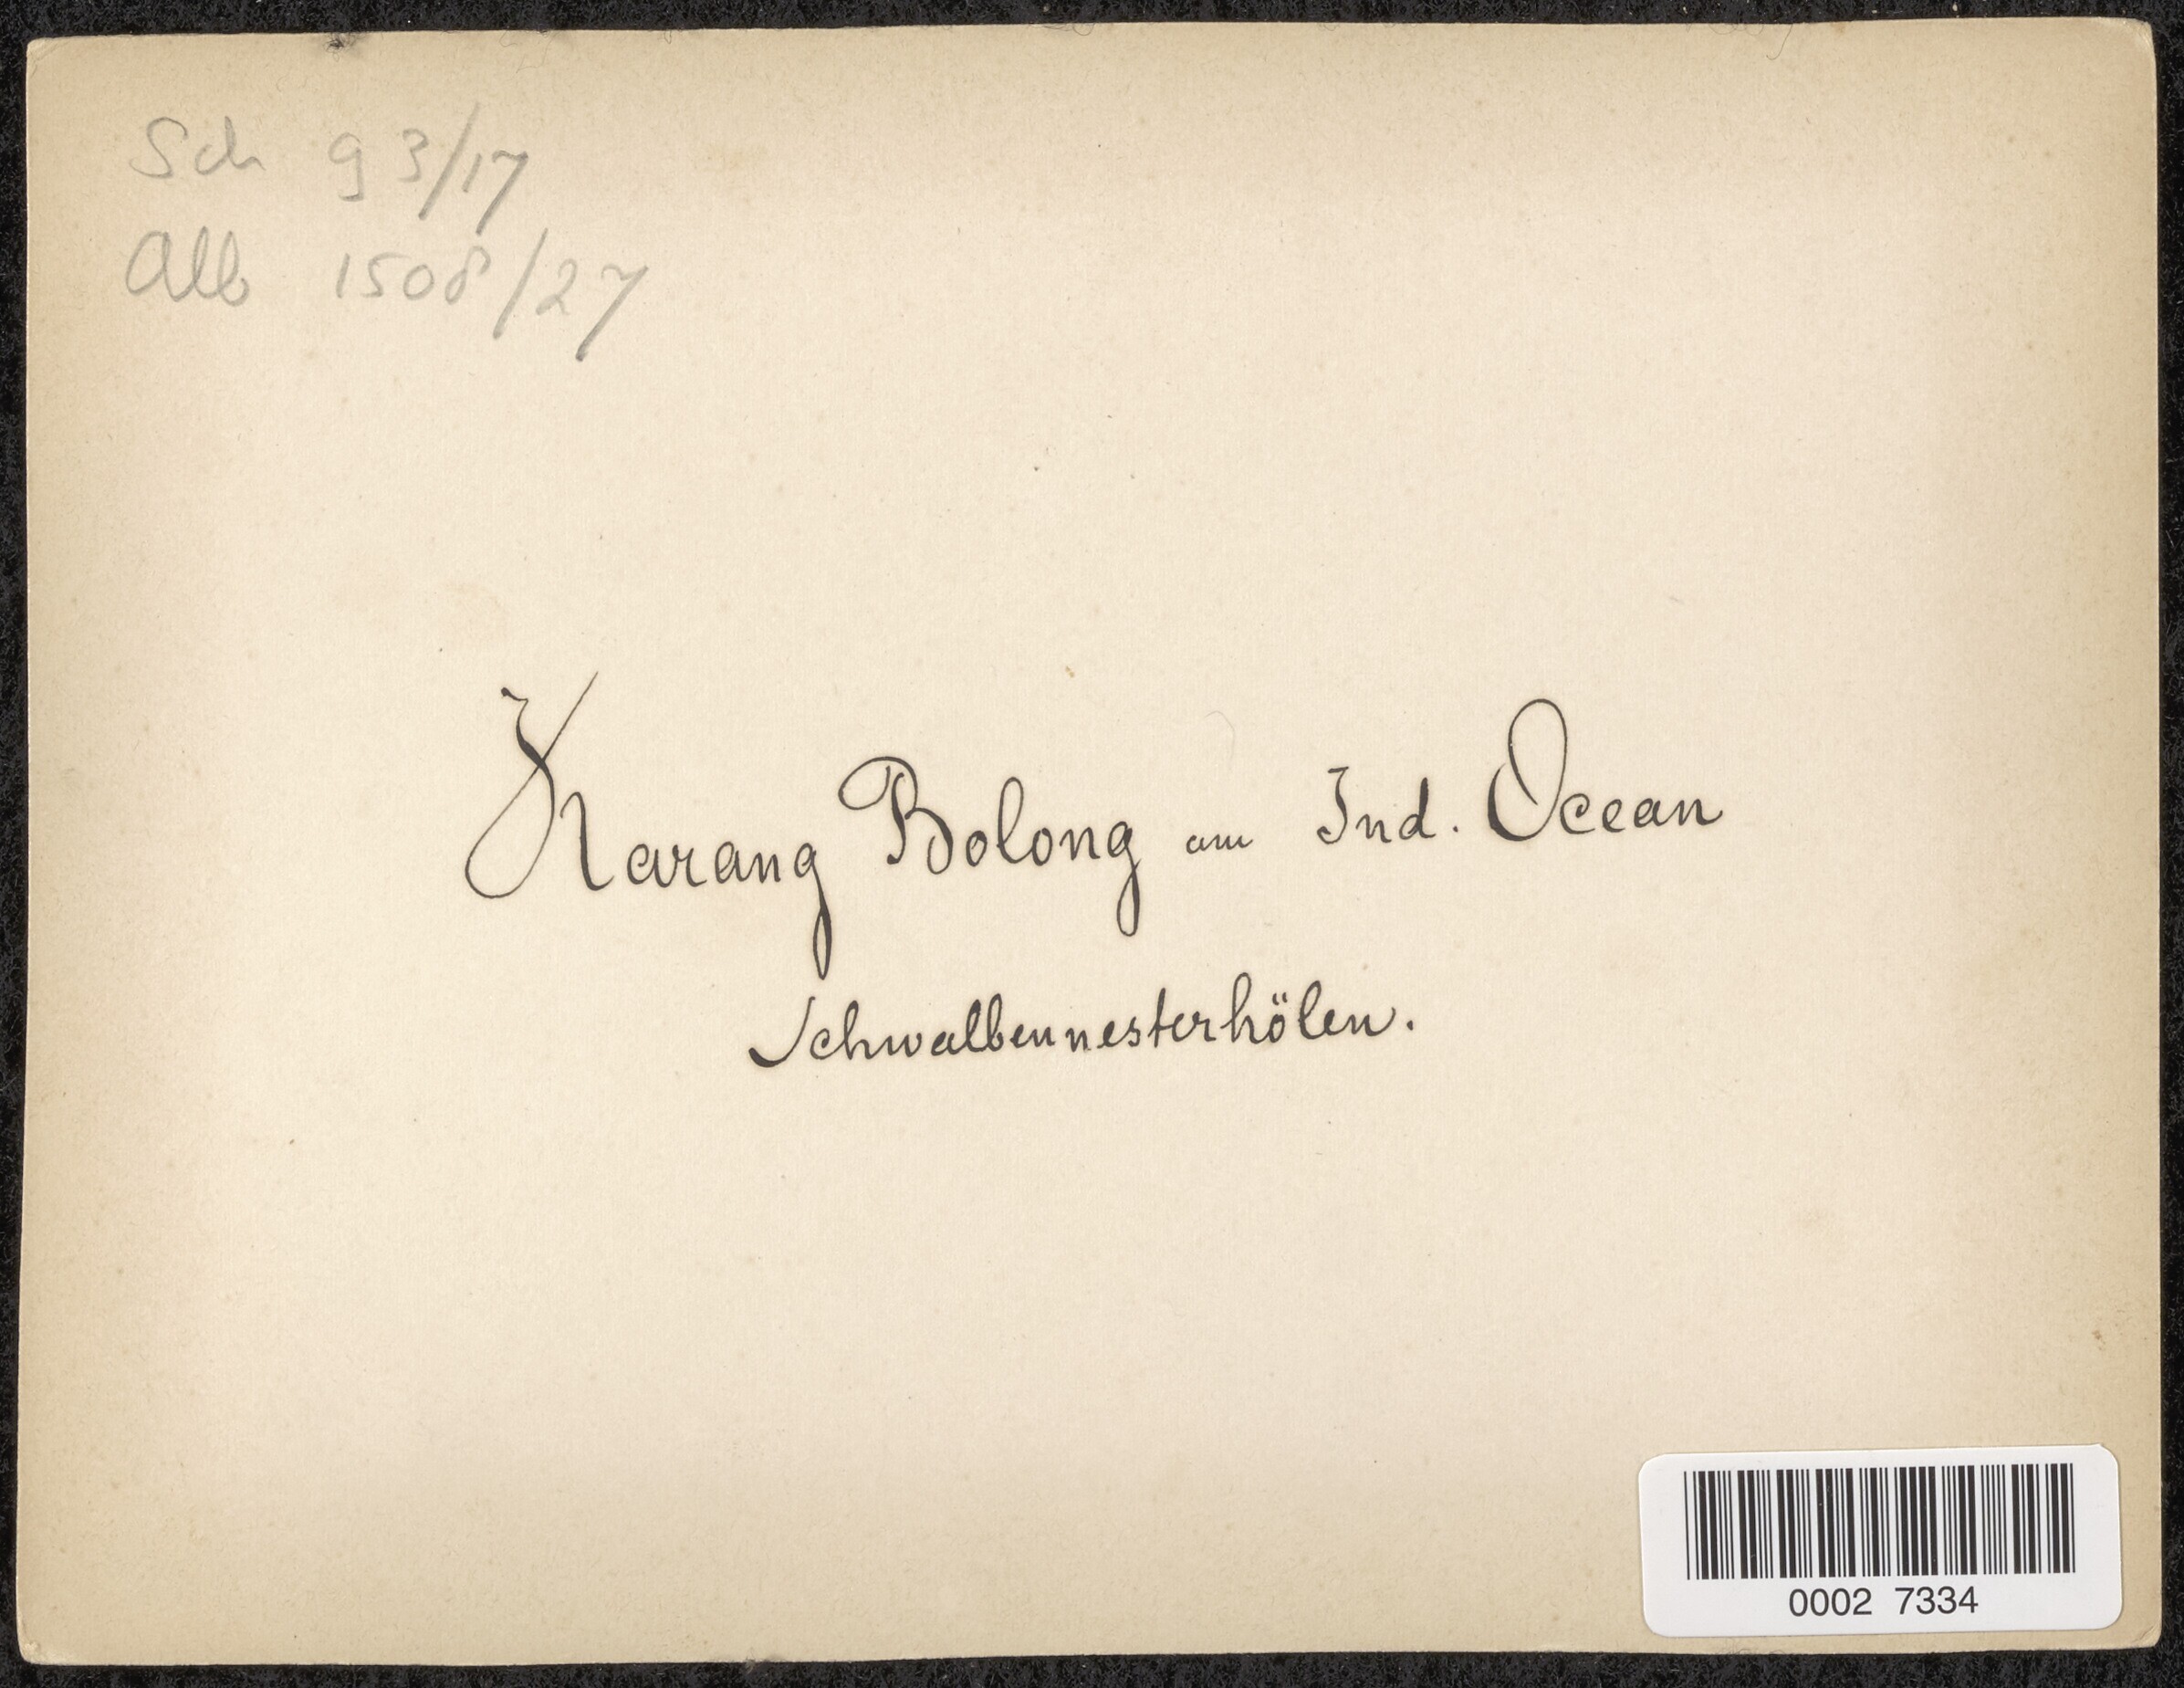 Sch 93/17
Alb 1508/27
Karang Bolong am Ind. Ocean
Schwalbennesterhölen.
0002 7334